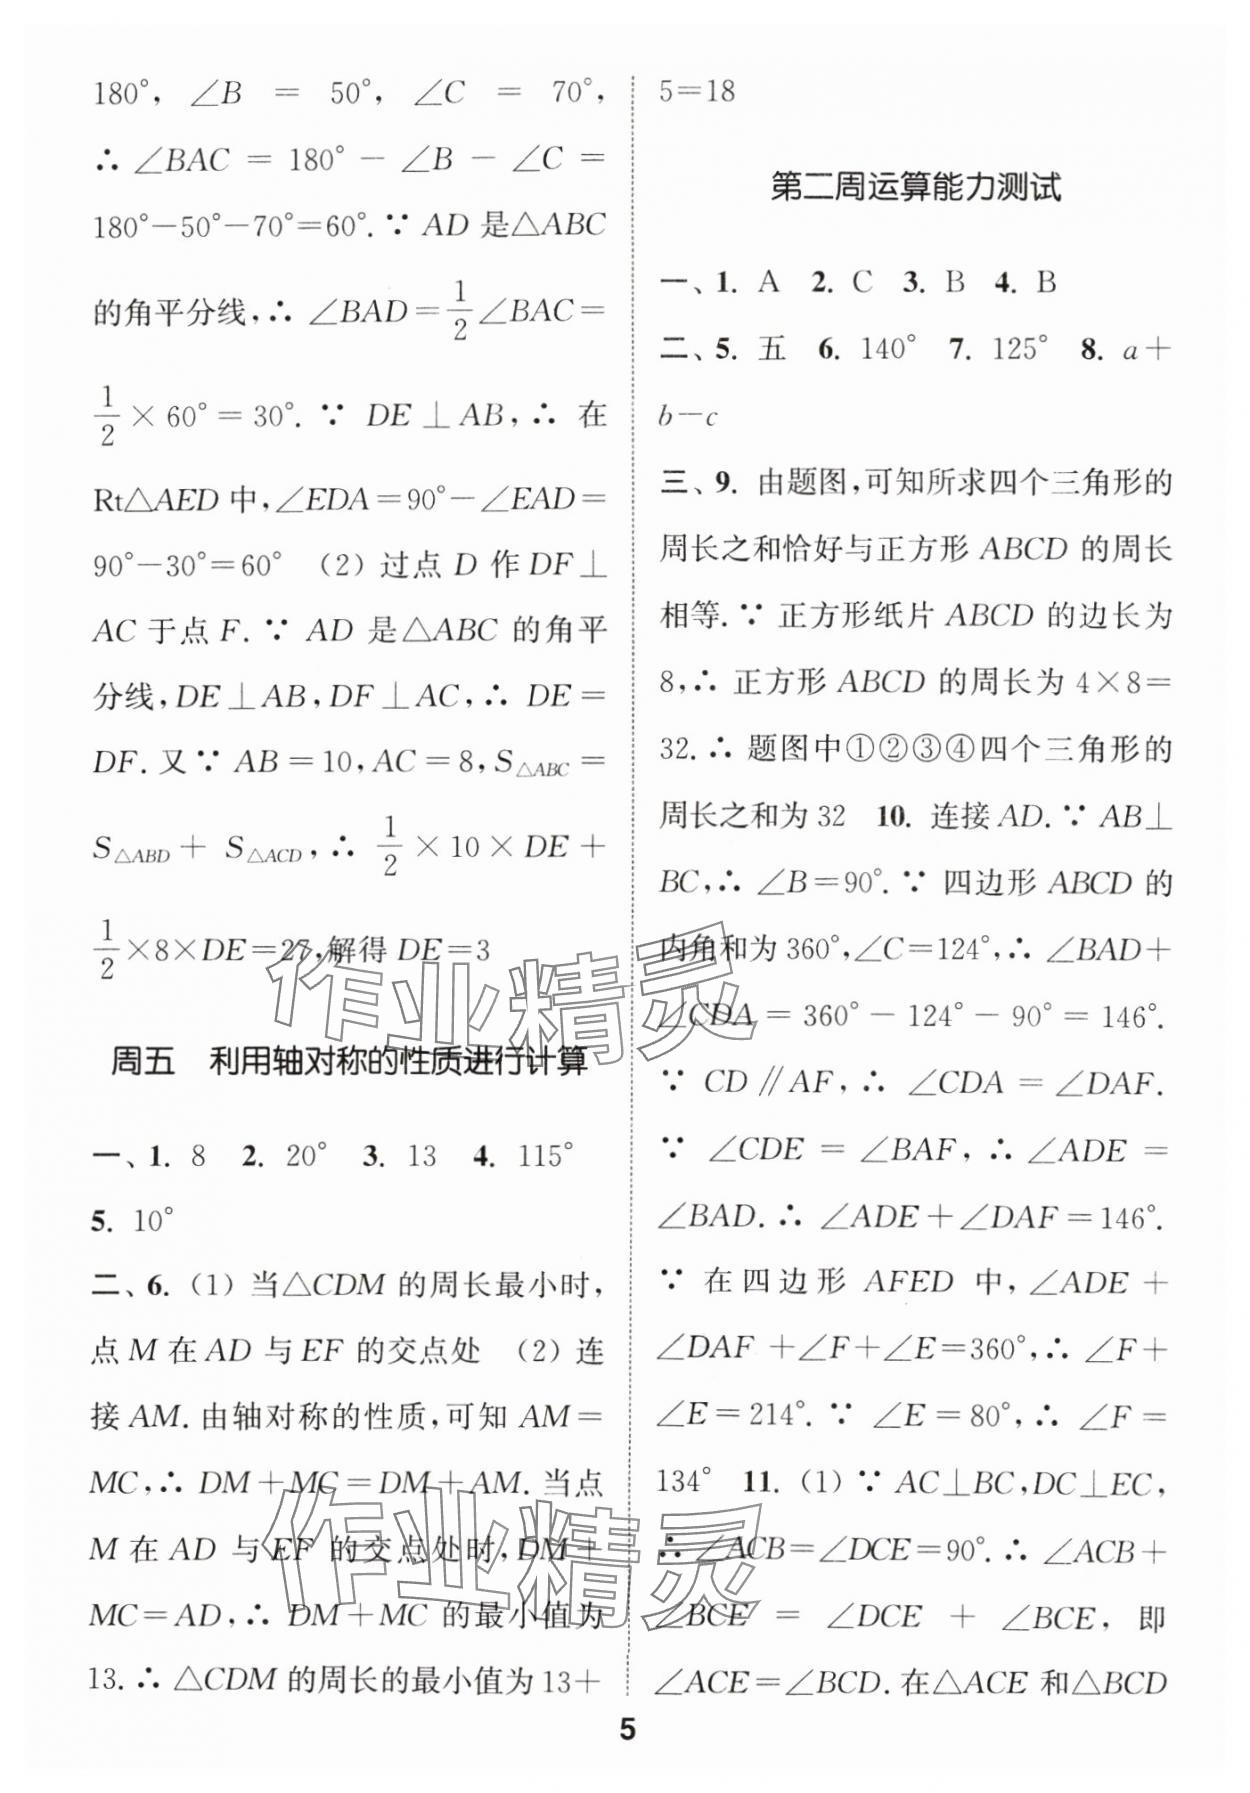 180°, ∠B = 50°, ∠C = 70°,
∴ ∠BAC = 180° − ∠B − ∠C =
180°−50°−70°=60°.∵ AD 是△ABC
的角平分线,∴ ∠BAD = 1/2 ∠BAC =
1/2 × 60° = 30°. ∵ DE⊥AB, ∴ 在
Rt△AED 中,∠EDA=90°−∠EAD=
90°−30°=60° (2) 过点 D 作 DF⊥
AC 于点 F. ∵ AD 是△ABC 的角平
分线,DE⊥AB,DF⊥AC,∴ DE=
DF. 又∵ AB=10,AC=8,S△ABC=
S△ABD + S△ACD,∴ 1/2 ×10×DE+
1/2 ×8×DE=27,解得 DE=3
周五 利用轴对称的性质进行计算
一、1. 8 2. 20° 3. 13 4. 115°
5. 10°
二、6. (1) 当△CDM 的周长最小时,
点 M 在 AD 与 EF 的交点处 (2) 连
接 AM. 由轴对称的性质,可知 AM=
MC,∴ DM+MC=DM+AM. 当点
M 在 AD 与 EF 的交点处时,DM+
MC=AD,∴ DM+MC 的最小值为
13.∴ △CDM 的周长的最小值为 13+
5=18
第二周运算能力测试
一、1. A 2. C 3. B 4. B
二、5. 五 6. 140° 7. 125° 8. a+
b−c
三、9. 由题图,可知所求四个三角形的
周长之和恰好与正方形 ABCD 的周长
相等.∵ 正方形纸片 ABCD 的边长为
8,∴ 正方形 ABCD 的周长为 4×8=
32.∴ 题图中①②③④四个三角形的
周长之和为 32 10. 连接 AD.∵ AB⊥
BC,∴ ∠B=90°.∵ 四边形 ABCD 的
内角和为 360°,∠C=124°,∴ ∠BAD+
∠CDA = 360° − 124° − 90° = 146°.
∵ CD∥AF, ∴ ∠CDA = ∠DAF.
∵ ∠CDE = ∠BAF, ∴ ∠ADE =
∠BAD.∴ ∠ADE+∠DAF=146°.
∵ 在四边形 AFED 中,∠ADE+
∠DAF+∠F+∠E=360°,∴ ∠F+
∠E=214°. ∵ ∠E=80°, ∴ ∠F=
134° 11. (1) ∵ AC⊥BC,DC⊥EC,
∴ ∠ACB=∠DCE=90°.∴ ∠ACB+
∠BCE = ∠DCE + ∠BCE, 即
∠ACE=∠BCD. 在△ACE 和△BCD
5
作业精灵
作业精灵